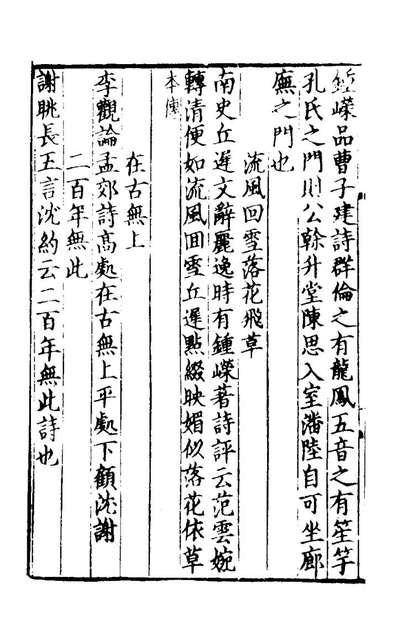 鍾嶸品曹子建詩群倫之有龍鳳五音之有笙竽
孔氏之門則公幹升堂陳思入室潘陸自可坐廊
廡之門也
流風回雪落花飛草
南史丘遲文辭麗逸時有鍾嶸著詩評云范雲婉
轉清便如流風回雪丘遲點綴映媚似落花依草
本傳
在古無上
李觀論孟郊詩高處在古無上平處下顧沈謝
二百年無此
謝眺長五言沈約云二百年無此詩也